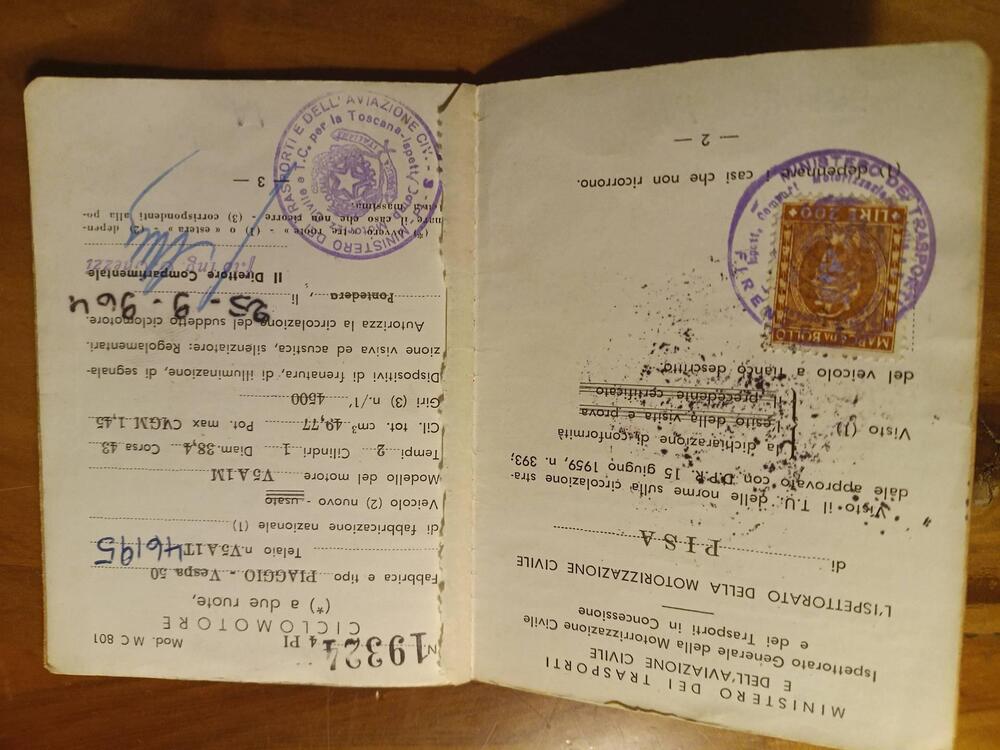 MINISTERO DEI TRASPORTI
E DELL'AVIAZIONE CIVILE
Ispettorato Generale della Motorizzazione Civile
e dei Trasporti in Concessione
L'ISPETTORATO DELLA MOTORIZZAZIONE CIVILE
di PISA
Visto il T.U. delle norme sulla circolazione stra-
dale approvato con D.P.R. 15 giugno 1959, n. 393;
Visto (1)
la dichiarazione di conformità
l'esito della visita e prova
il precedente certificato
del veicolo a fianco descritto.
MARCA DA BOLLO
LIRE 200
MINISTERO DEI TRASPORTI
(1) depennare i casi che non ricorrono.
— 2 —
N. 19324 4 PI Mod. M C 801
CICLOMOTORE
(*) a due ruote,
Fabbrica e tipo PIAGGIO - Vespa 50
Telaio n. V5A1T 46195
di fabbricazione nazionale (1)
Veicolo (2) nuovo - usato
Modello del motore V5A1M
Tempi 2 Cilindri 1 Diam. 38,4 Corsa 43
Cil. tot. cm³ 49,77 Pot. max CVGM 1,45
Giri (3) n./1' 4500
Dispositivi di frenatura, di illuminazione, di segnala-
zione visiva ed acustica, silenziatore: Regolamentari.
Autorizza la circolazione del suddetto ciclomotore.
Pontedera, li 25-9-964
Il Direttore Compartimentale
(*) ovvero «tre ruote» - (1) o «estera» - (2) depen-
nare il caso che non ricorre - (3) corrispondenti alla po-
tenza massima.
— 3 —
MINISTERO DEI TRASPORTI E DELL'AVIAZIONE CIV.
per la Toscana